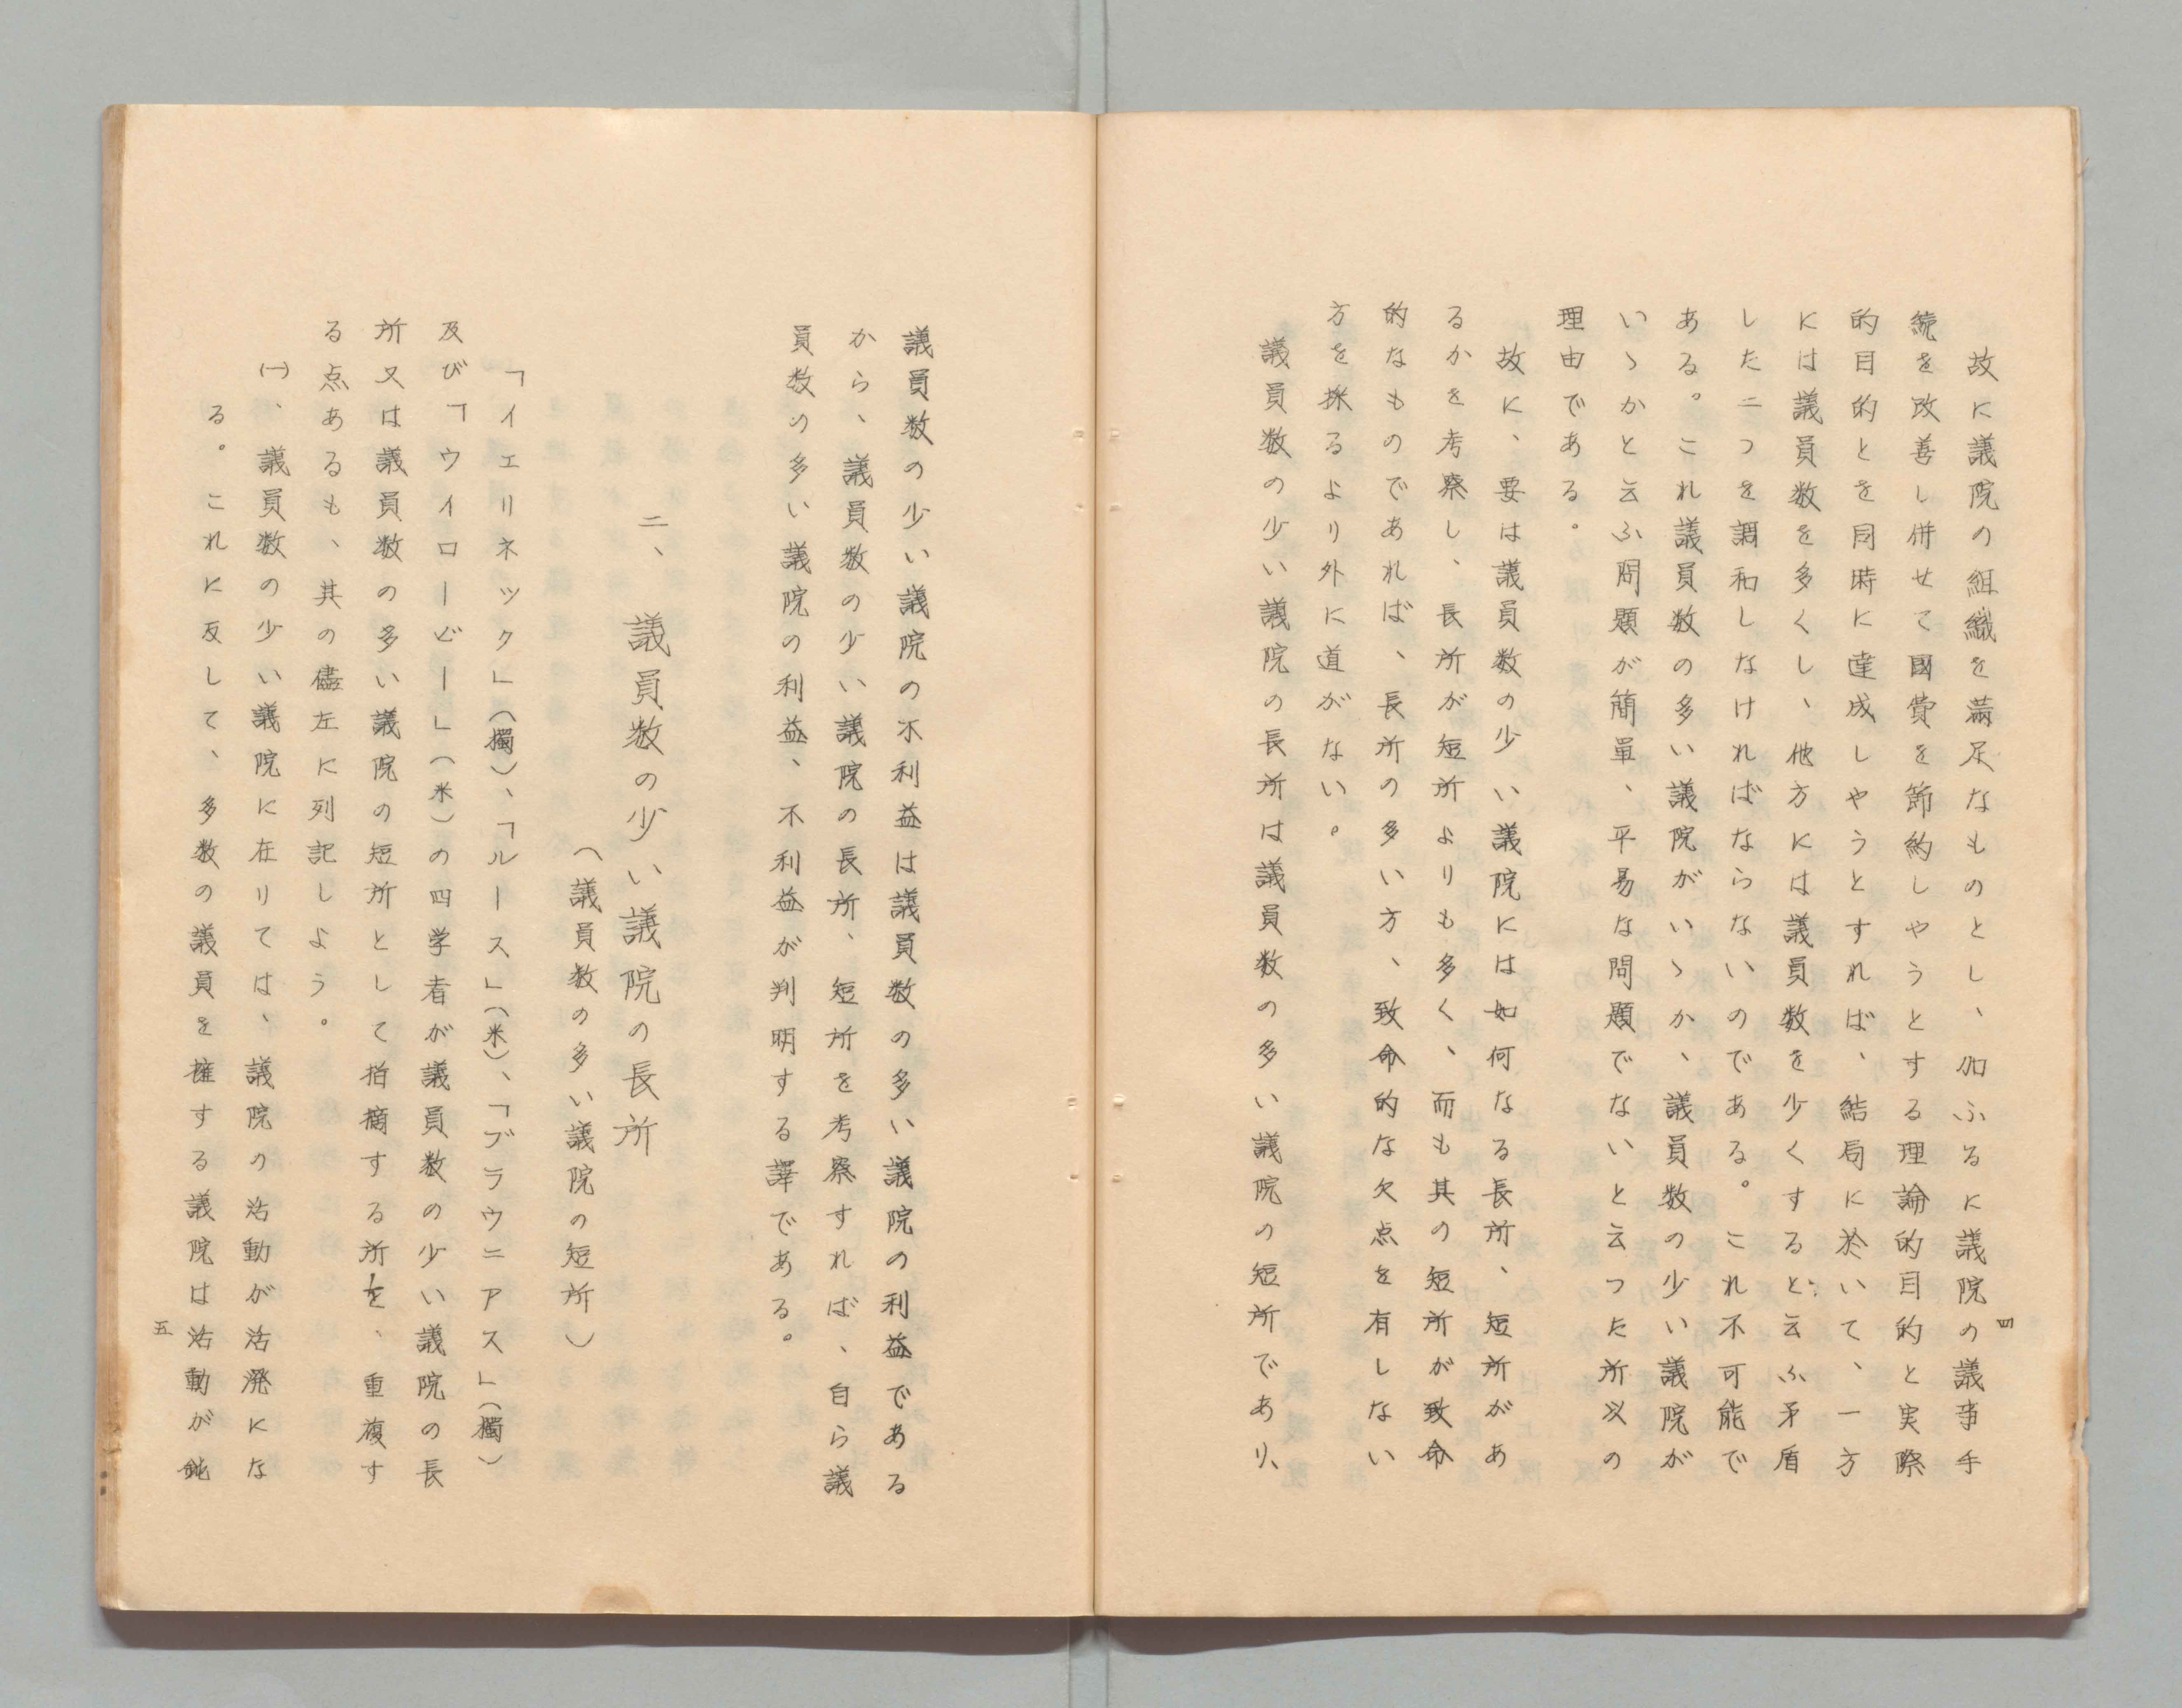 四
故に議院の組織を満足なものとし、加ふるに議院の議事手
続を改善し併せて國費を節約しやうとする理論的目的と実際
的目的とを同時に達成しやうとすれば、結局に於いて、一方
には議員数を多くし、他方には議員数を少くすると云ふ矛盾
した二つを調和しなければならないのである。これ不可能で
ある。これ議員数の多い議院がいゝか、議員数の少い議院が
いゝかと云ふ問題が簡單、平易な問題でないと云つた所以の
理由である。
故に、要は議員数の少い議院には如何なる長所、短所があ
るかを考察し、長所が短所よりも多く、而も其の短所が致命
的なものであれば、長所の多い方、致命的な欠点を有しない
方を採るより外に道がない。
議員数の少い議院の長所は議員数の多い議院の短所であり、
議員数の少い議院の不利益は議員数の多い議院の利益である
から、議員数の少い議院の長所、短所を考察すれば、自ら議
員数の多い議院の利益、不利益が判明する譯である。
二、議員数の少い議院の長所
（議員数の多い議院の短所）
「イェリネック」（獨）、「ルース」（米）、「ブラウニアス」（獨）
及び「ウイロービー」（米）の四学者が議員数の少い議院の長
所又は議員数の多い議院の短所として指摘する所を、重複す
る点あるも、其の儘左に列記しよう。
㈠、議員数の少い議院に在りては、議院の活動が活溌にな
る。これに反して、多数の議員を擁する議院は活動が鈍
五